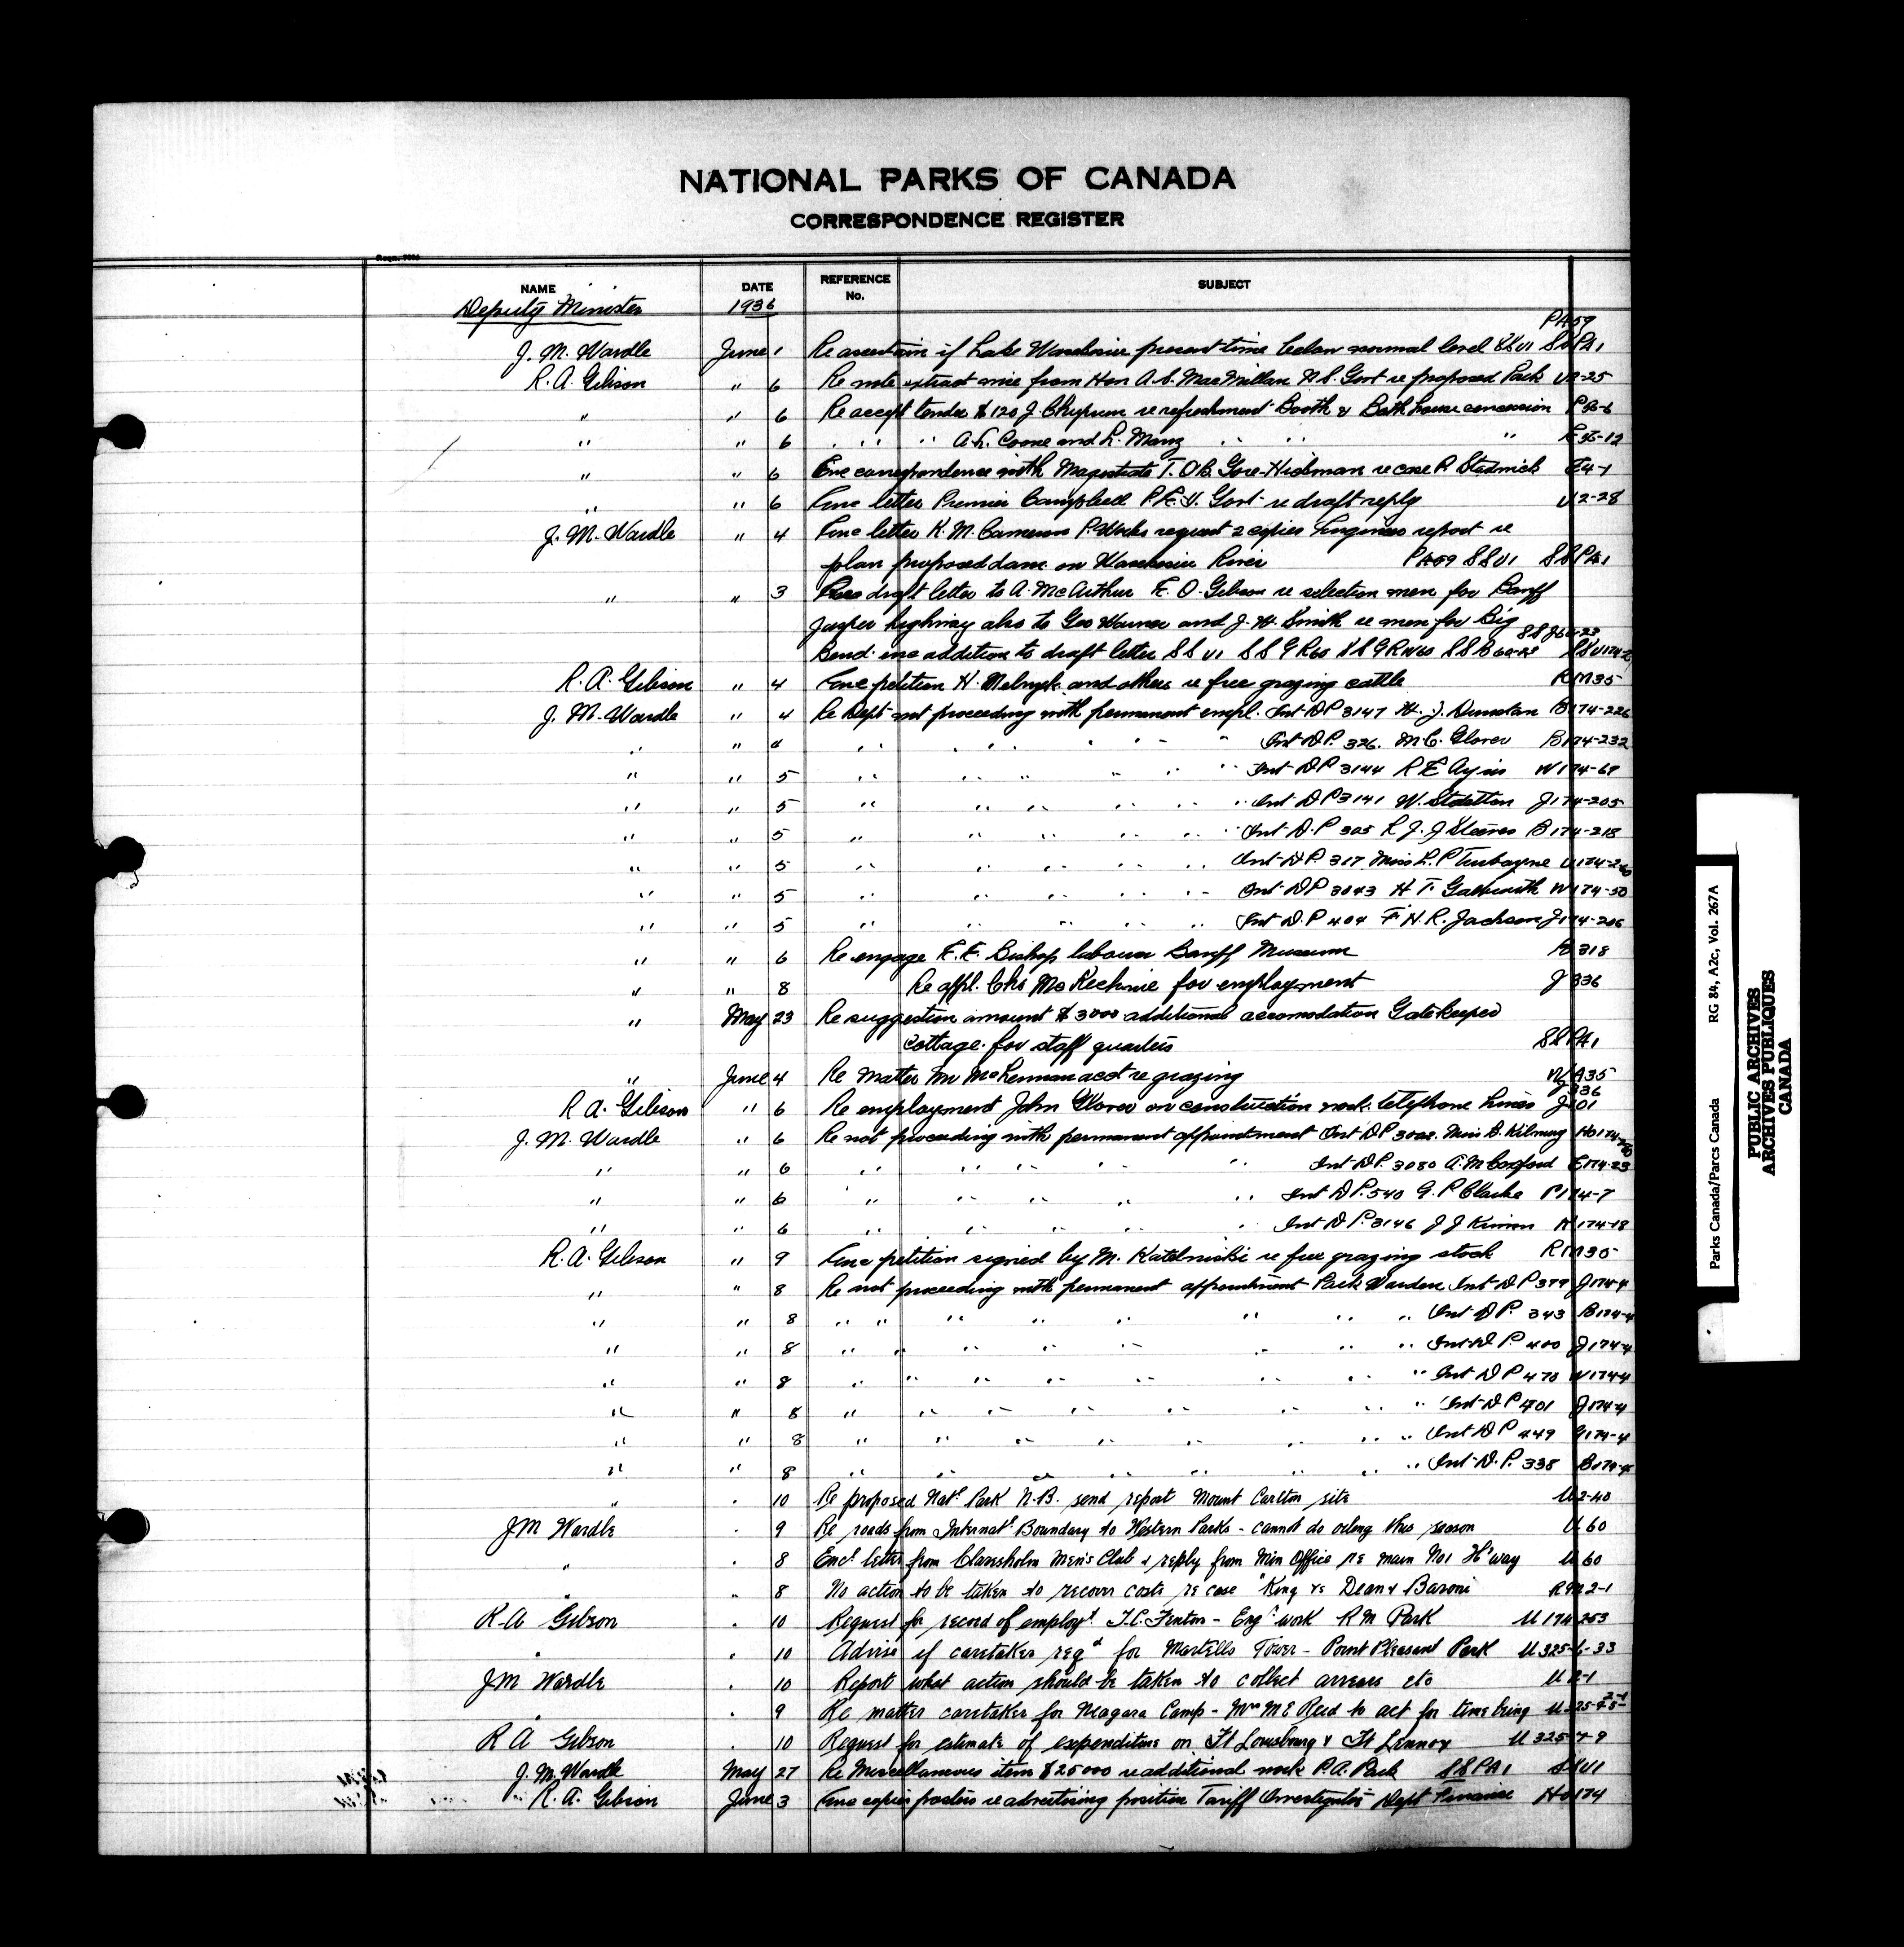 NATIONAL PARKS OF CANADA
CORRESPONDENCE REGISTER
NAME DATE REFERENCE No. SUBJECT
Deputy Minister 1936
PA59
J. M. Wardle June 1 Re ascertain if Lake Waskesiu present time below normal level SSU1 SSPA1
R. A. Gibson " 6 Re note extract mire from Hon A. S. MacMillan N.S. Govt re proposed Park U2-25
" " 6 Re accept tender $120 J. Chuprum re refreshment Booth & Bath house concession P56-6
" " 6 " " " A. L. Coone and L. Manz " " " E56-12
" " 6 Enc correspondence with Magistrate T. O. B. Gore-Hickman re case P. Stadnick E4-1
" " 6 Enc letter Premier Campbell P.E.I. Govt re draft reply U2-28
J. M. Wardle " 4 Enc letter K. M. Cameron P. Works request 2 copies Engineers report re
plan proposed dam on Waskesiu River PA59 SSU1 SSPA1
" " 3 Enc draft letter to A. McArthur E. O. Gibson re selection men for Banff
Jasper highway also to Geo Warner and J. H. Smith re men for Big
Bend. enc addition to draft letter SSU1 SSGR60 SSGRW60 SSB60
R. A. Gibson " 4 Enc petition H. Melnyk and others re free grazing cattle RM35
J. M. Wardle " 4 Re Dept not proceeding with permanent empl. Int DP 3147 H. J. Dunstan B174-226
" " 4 " " " " " " Int DP. 326. M. C. Glover B174-232
" " 5 " " " " " " Int DP 3144 R E Ayris W174-67
" " 5 " " " " " " Int DP 3141 W. Stratton J174-205
" " 5 " " " " " " Int D.P 305 L J. J Steeves B174-218
" " 5 " " " " " " Int DP. 317 Miss L. P Turbayne U174-2
" " 5 " " " " " " Int DP 3043 H T. Galbraith W174-50
" " 5 " " " " " " Int D.P 404 F. H. R. Jackson J174-206
" " 6 Re engage E. E. Bishop labourer Banff Museum B318
" " 8 Re appl. Chs McKechnie for employment J336
" May 23 Re suggestion amount $3000 additional accomodation Gatekeeper
cottage for staff quarters SSPA1
" June 4 Re matter Mr McLennan acct re grazing WA35
J336
R A. Gibson " 6 Re employment John Glover on construction work telephone lines J201
J. M. Wardle " 6 Re not proceeding with permanent appointment Int DP 3002. Miss D. Kilmury Ho174
" " 6 " " " " " Int DP. 3080 A. M Coxford E174-23
" " 6 " " " " " Int DP. 540 G. P Clarke P174-7
" " 6 " " " " " Int DP. 3146 J J Kinien K174-18
R. A. Gibson " 9 Enc petition signed by M. Katelniski re free grazing stock RM35
" " 8 Re not proceeding with permanent appointment Park Warden Int DP 399 J174-4
" " 8 " " " " " " " " Int DP. 343 B174-4
" " 8 " " " " " " " " Int DP. 400 J174-4
" " 8 " " " " " " " " Int DP 470 W174-4
" " 8 " " " " " " " " Int DP 401 J174-4
" " 8 " " " " " " " " Int DP 449 G174-4
" " 8 " " " " " " " " Int D.P. 338 B174-4
" " 10 Re proposed Natl Park N.B. send report Mount Carlton site U2-40
J M Wardle " 9 Re roads from Internatl Boundary to Western Parks - cannot do oiling this season U60
" " 8 Encl letter from Claresholm Men's Club & reply from Min Office re main No1 H'way U60
" " 8 No action to be taken to recover costs re case "King vs Dean & Baroni RM2-1
R A Gibson " 10 Request for record of employt T.C. Fenton - Engr work R M Park U174-253
" " 10 Advise if caretaker reqd for Martello Tower - Point Pleasant Park U325-6-33
J M Wardle " 10 Report what action should be taken to collect arrears etc U2-1
" " 9 Re matter caretaker for Niagara Camp - Mrs M E Reid to act for time being
R A Gibson " 10 Request for estimate of expenditure on Ft Louisbourg & Ft Lennox U325-7-9
J. M. Wardle May 27 Re Miscellaneous item $25000 re additional work P.A. Park SSPA1 SSU1
R. A. Gibson June 3 Enc copies posters re advertising position Tariff Investigator Dept Finance Ho174
Parks Canada/Parcs Canada RG 84, A2c, Vol. 267A
PUBLIC ARCHIVES
ARCHIVES PUBLIQUES
CANADA